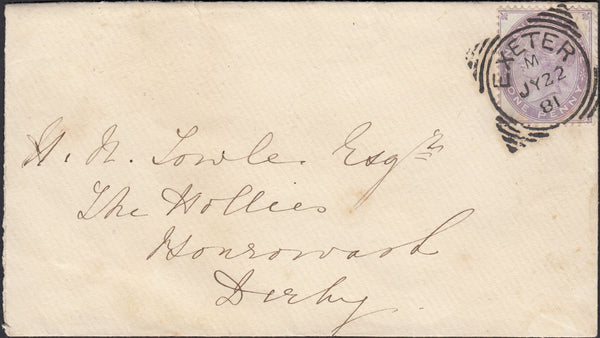 EXETER
M
JY 22
81
ONE PENNY
H. N. Towle. Esqre
The Hollies
Honrowash
Derby.